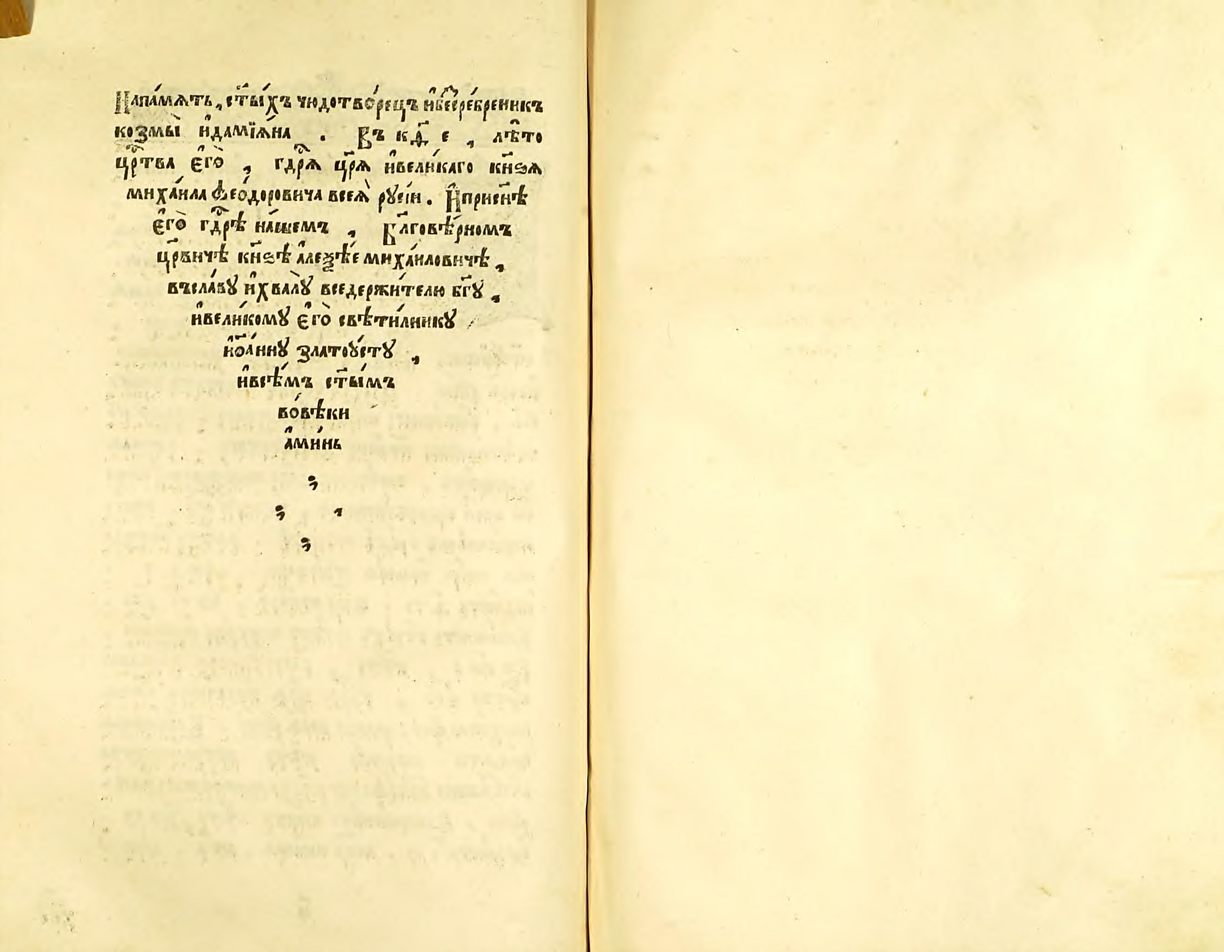 Напа́мѧть, ст҃ы́хъ чюдотво́рецъ и҆бесре́бреникъ
козмы̀ и҆дамїѧ́на . Въ к҃д е , лѣ́то
црⷭ҇тва є҆гѡ̀ , гдⷭ҇рѧ цр҃ѧ̀ и҆вели́каго кн҃ѕѧ
михаи́ла ѳео́доровича всеѧ̀ рꙋсі́и . И҆присн҃ѣ
є҆го̀ гдⷭ҇рѣ на́шемъ , Бл҃говѣ́рномъ
цр҃вичѣ кн҃ѕѣ а҆леѯѣ́е миха́иловичѣ ,
въсла́вꙋ и҆хвалꙋ̀ вседержи́телю бг҃ꙋ ,
и҆вели́комꙋ є҆го̀ свѣти́лникꙋ
и҆ѡа́ннꙋ златоꙋ́стꙋ ,
и҆всѣ́мъ ст҃ы́мъ
вовѣ́ки
а҆ми́нь